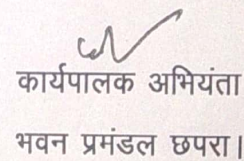 कार्यपालक अभियंता
भवन प्रमंडल छपरा।